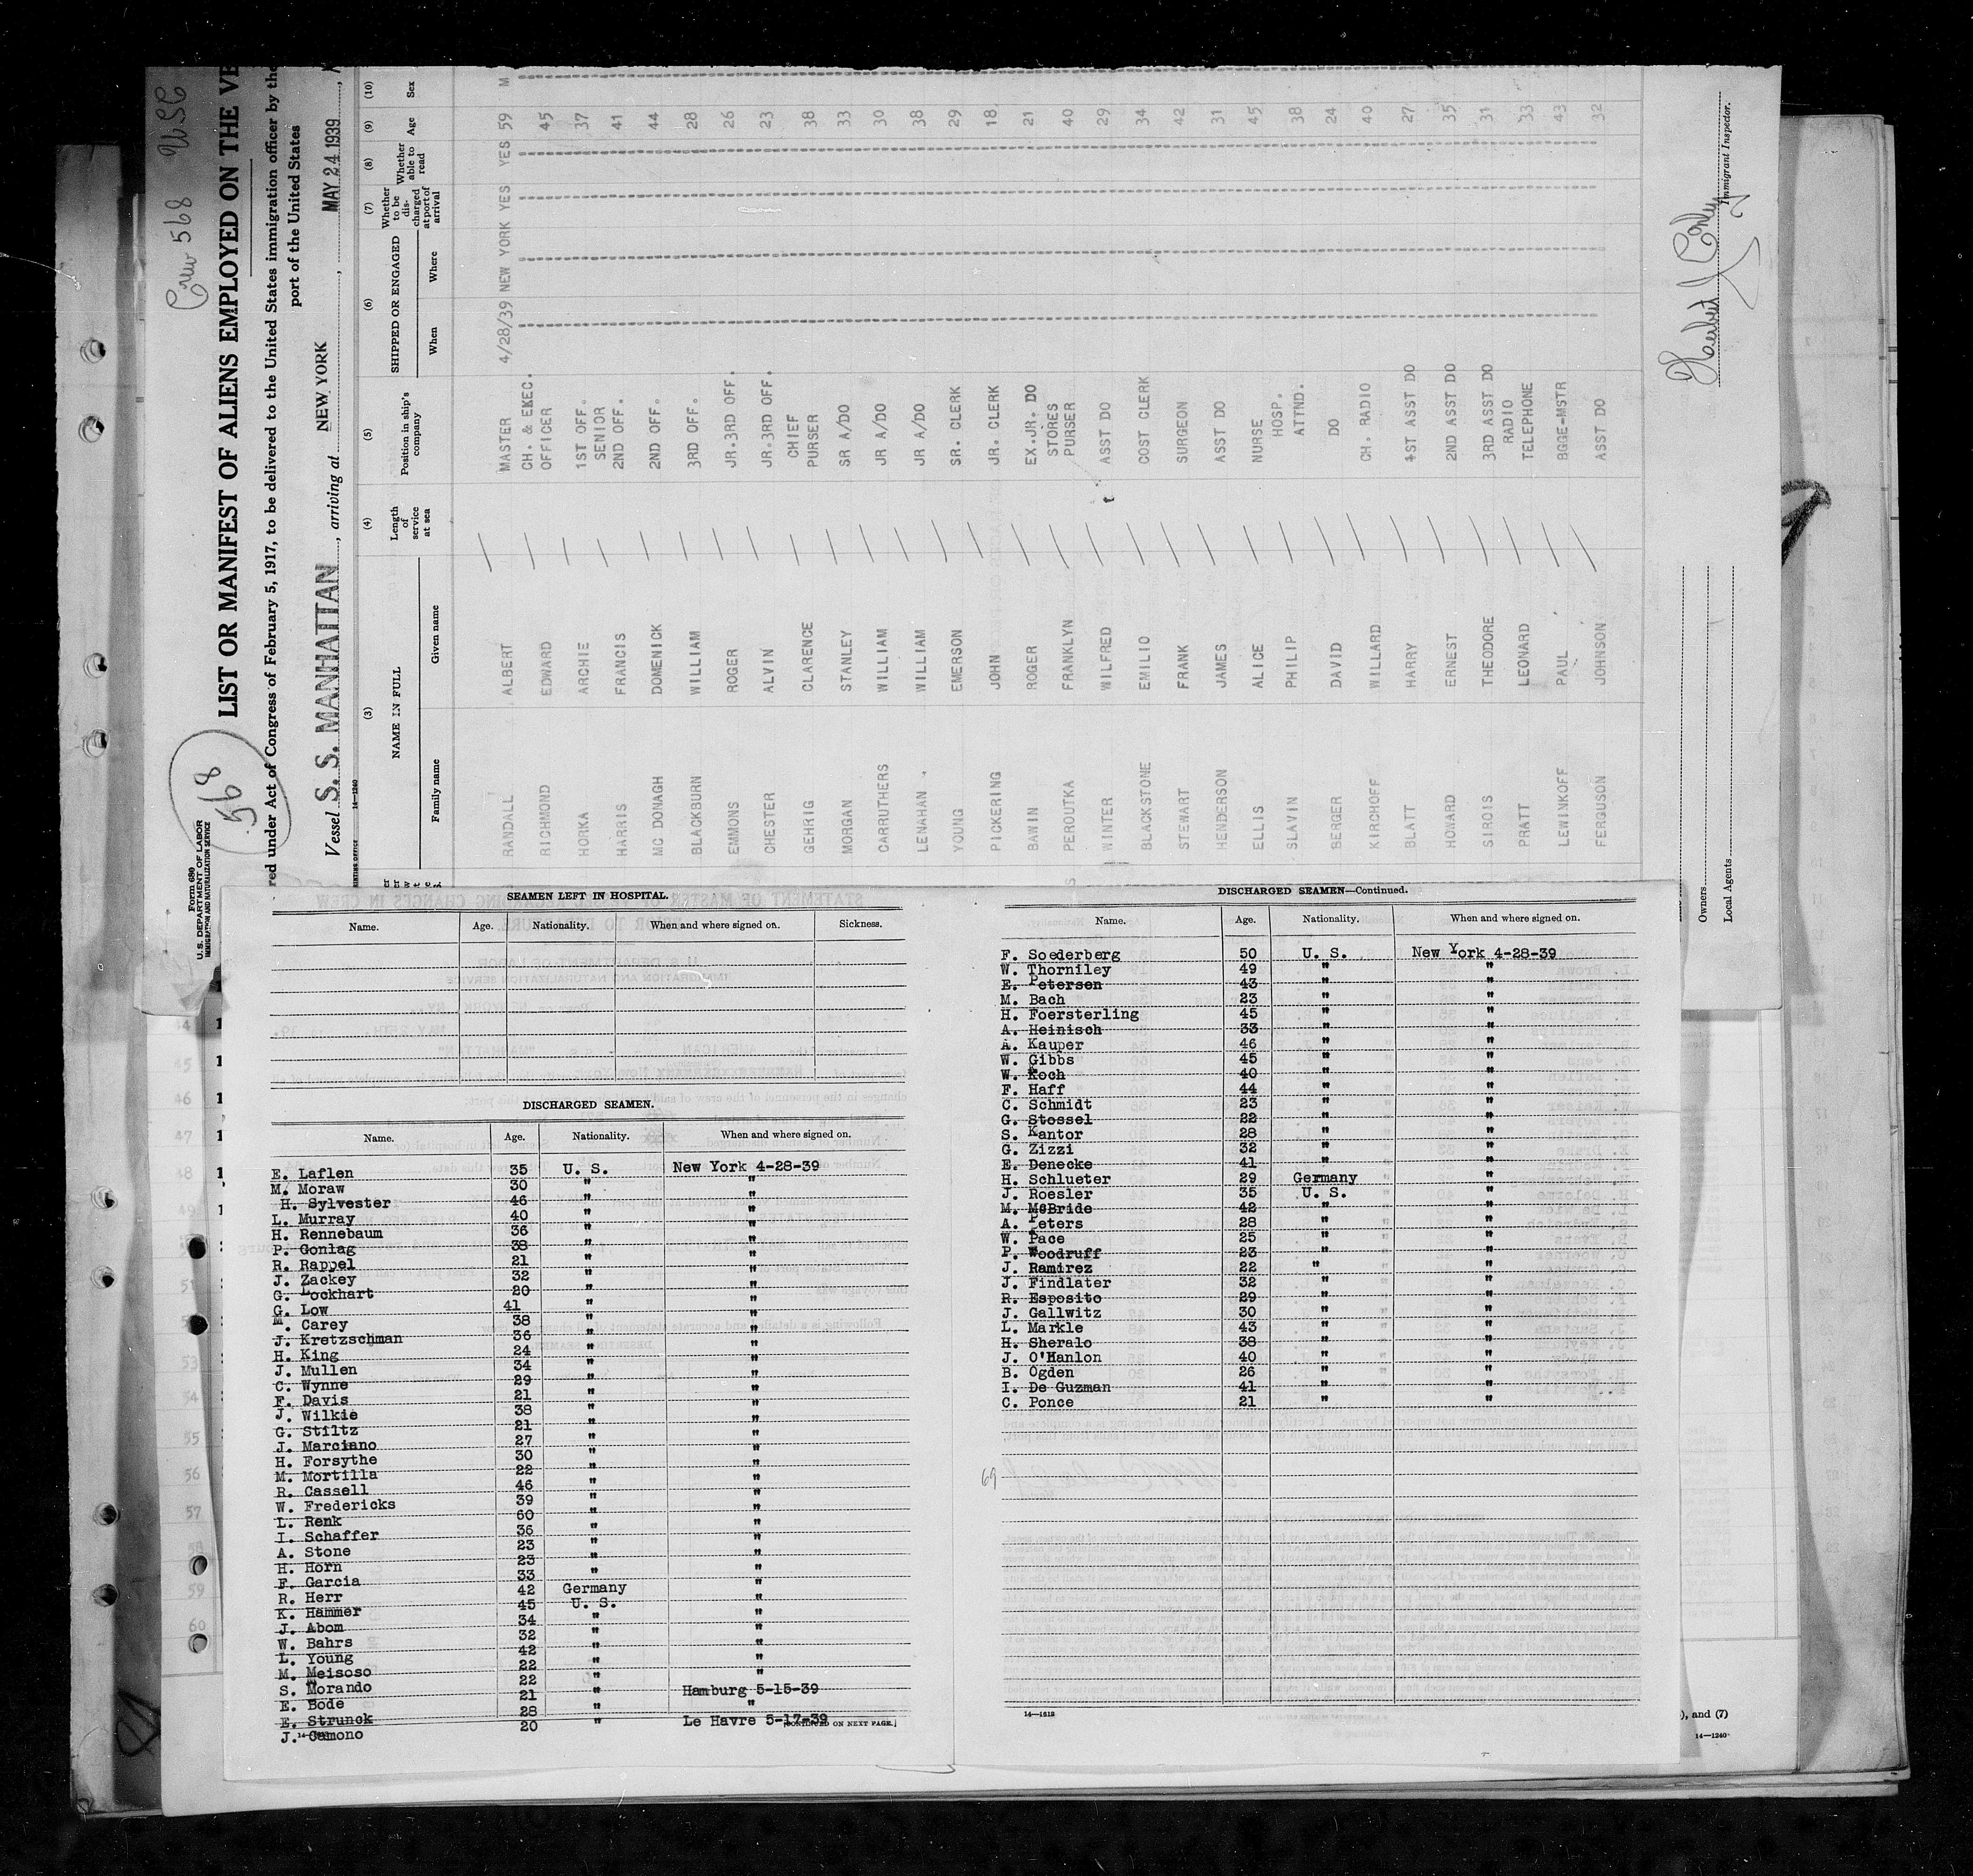 Crew 568 USC
568
Form 680
U. S. DEPARTMENT OF LABOR
IMMIGRATION AND NATURALIZATION SERVICE
LIST OR MANIFEST OF ALIENS EMPLOYED ON THE VE
red under Act of Congress of February 5, 1917, to be delivered to the United States immigration officer by the
port of the United States
Vessel S. S. MANHATTAN, arriving at NEW YORK, MAY 24 1939,
14—1240
(3) (4) (5) (6) (7) (8) (9) (10)
NAME IN FULL
Family name Given name
Length of service at sea
Position in ship's company
SHIPPED OR ENGAGED
When Where
Whether to be discharged at port of arrival
Whether able to read
Age
Sex
RANDALL ALBERT MASTER 4/28/39 NEW YORK YES YES 59 M
RICHMOND EDWARD CH. & EXEC. OFFICER 45
HORKA ARCHIE 1ST OFF. 37
HARRIS FRANCIS SENIOR 2ND OFF. 41
MC DONAGH DOMENICK 2ND OFF. 44
BLACKBURN WILLIAM 3RD OFF. 28
EMMONS ROGER JR.3RD OFF. 26
CHESTER ALVIN JR.3RD OFF. 23
GEHRIG CLARENCE CHIEF PURSER 38
MORGAN STANLEY SR A/DO 33
CARRUTHERS WILLIAM JR A/DO 30
LENAHAN WILLIAM JR A/DO 38
YOUNG EMERSON SR. CLERK 29
PICKERING JOHN JR. CLERK 18
BAWIN ROGER EX.JR. DO 21
PEROUTKA FRANKLYN STORES PURSER 40
WINTER WILFRED ASST DO 29
BLACKSTONE EMILIO COST CLERK 34
STEWART FRANK SURGEON 42
HENDERSON JAMES ASST DO 31
ELLIS ALICE NURSE 45
SLAVIN PHILIP HOSP. ATTND. 38
BERGER DAVID DO 24
KIRCHOFF WILLARD CH. RADIO 40
BLATT HARRY 1ST ASST DO 27
HOWARD ERNEST 2ND ASST DO 35
SIROIS THEODORE 3RD ASST DO 31
PRATT LEONARD RADIO TELEPHONE 33
LEWINKOFF PAUL BGGE-MSTR 43
FERGUSON JOHNSON ASST DO 32
Immigrant Inspector.
Owners
Local Agents
), and (7)
14—1240
SEAMEN LEFT IN HOSPITAL.
Name. Age. Nationality. When and where signed on. Sickness.
DISCHARGED SEAMEN.
Name. Age. Nationality. When and where signed on.
E. Laflen 35 U. S. New York 4-28-39
M. Moraw 30 " "
H. Sylvester 46 " "
L. Murray 40 " "
H. Rennebaum 36 " "
P. Gonlag 38 " "
R. Rappel 21 " "
J. Zackey 32 " "
G. Lockhart 20 " "
G. Low 41 " "
M. Carey 38 " "
J. Kretzschman 36 " "
H. King 24 " "
J. Mullen 34 " "
C. Wynne 29 " "
F. Davis 21 " "
J. Wilkie 38 " "
G. Stiltz 21 " "
J. Marciano 27 " "
H. Forsythe 30 " "
M. Mortilla 22 " "
R. Cassell 46 " "
W. Fredericks 39 " "
L. Renk 60 " "
I. Schaffer 36 " "
A. Stone 23 " "
H. Horn 23 " "
F. Garcia 33 " "
R. Herr 42 Germany "
K. Hammer 45 U. S. "
J. Abom 34 " "
W. Bahrs 32 " "
L. Young 42 " "
M. Meisoso 22 " "
S. Morando 22 " "
E. Bode 21 " Hamburg 5-15-39
E. Strunck 28 " "
J. Camono 20 " Le Havre 5-17-39
[CONTINUED ON NEXT PAGE.]
DISCHARGED SEAMEN—Continued.
Name. Age. Nationality. When and where signed on.
F. Soederberg 50 U. S. New York 4-28-39
W. Thorniley 49 " "
E. Petersen 43 " "
M. Bach 23 " "
H. Foersterling 45 " "
A. Heinisch 33 " "
A. Kauper 46 " "
W. Gibbs 45 " "
W. Koch 40 " "
F. Haff 44 " "
C. Schmidt 23 " "
G. Stossel 22 " "
S. Kantor 28 " "
G. Zizzi 32 " "
E. Denecke 41 " "
H. Schlueter 29 Germany "
J. Roesler 35 U. S. "
M. McBride 42 " "
A. Peters 28 " "
W. Pace 25 " "
P. Woodruff 23 " "
J. Ramirez 22 " "
J. Findlater 32 " "
R. Esposito 29 " "
J. Gallwitz 30 " "
L. Markle 43 " "
H. Sheralo 38 " "
J. O'Hanlon 40 " "
B. Ogden 26 " "
I. De Guzman 41 " "
C. Ponce 21 " "
69
14—1612
44
45
46
47
48
53
54
55
56
57
58
59
60